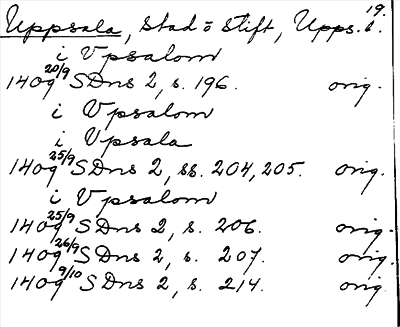 19.
Uppsala, stad o stift, Upps. l.
i Vpsalom
1409 20/9 SDns 2, s. 196. orig.
i Vpsalom
i Vpsala
1409 25/9 SDns 2, ss. 204, 205. orig.
i Vpsalom
1409 25/9 SDns 2, s. 206. orig.
1409 26/9 SDns 2, s. 207. orig.
1409 9/10 SDns 2, s. 214. orig.